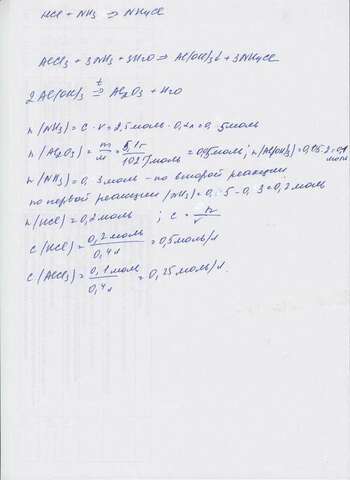 HCl + NH3 => NH4Cl
AlCl3 + 3NH3 + 3H2O => Al(OH)3↓ + 3NH4Cl
t
2Al(OH)3 => Al2O3 + H2O
n(NH3) = c · v = 2,5моль · 0,2л = 0,5моль
n(Al2O3) = m/M = 5,1г/102г/моль = 0,05моль; n(Al(OH)3) = 0,05·2 = 0,1 моль
n(NH3) = 0,3моль - по второй реакции
по первой реакции (NH3) = 0,5 - 0,3 = 0,2моль
n(HCl) = 0,2моль ; c = n/v
c(HCl) = 0,2моль/0,4л = 0,5моль/л
c(AlCl3) = 0,1моль/0,4л = 0,25моль/л.